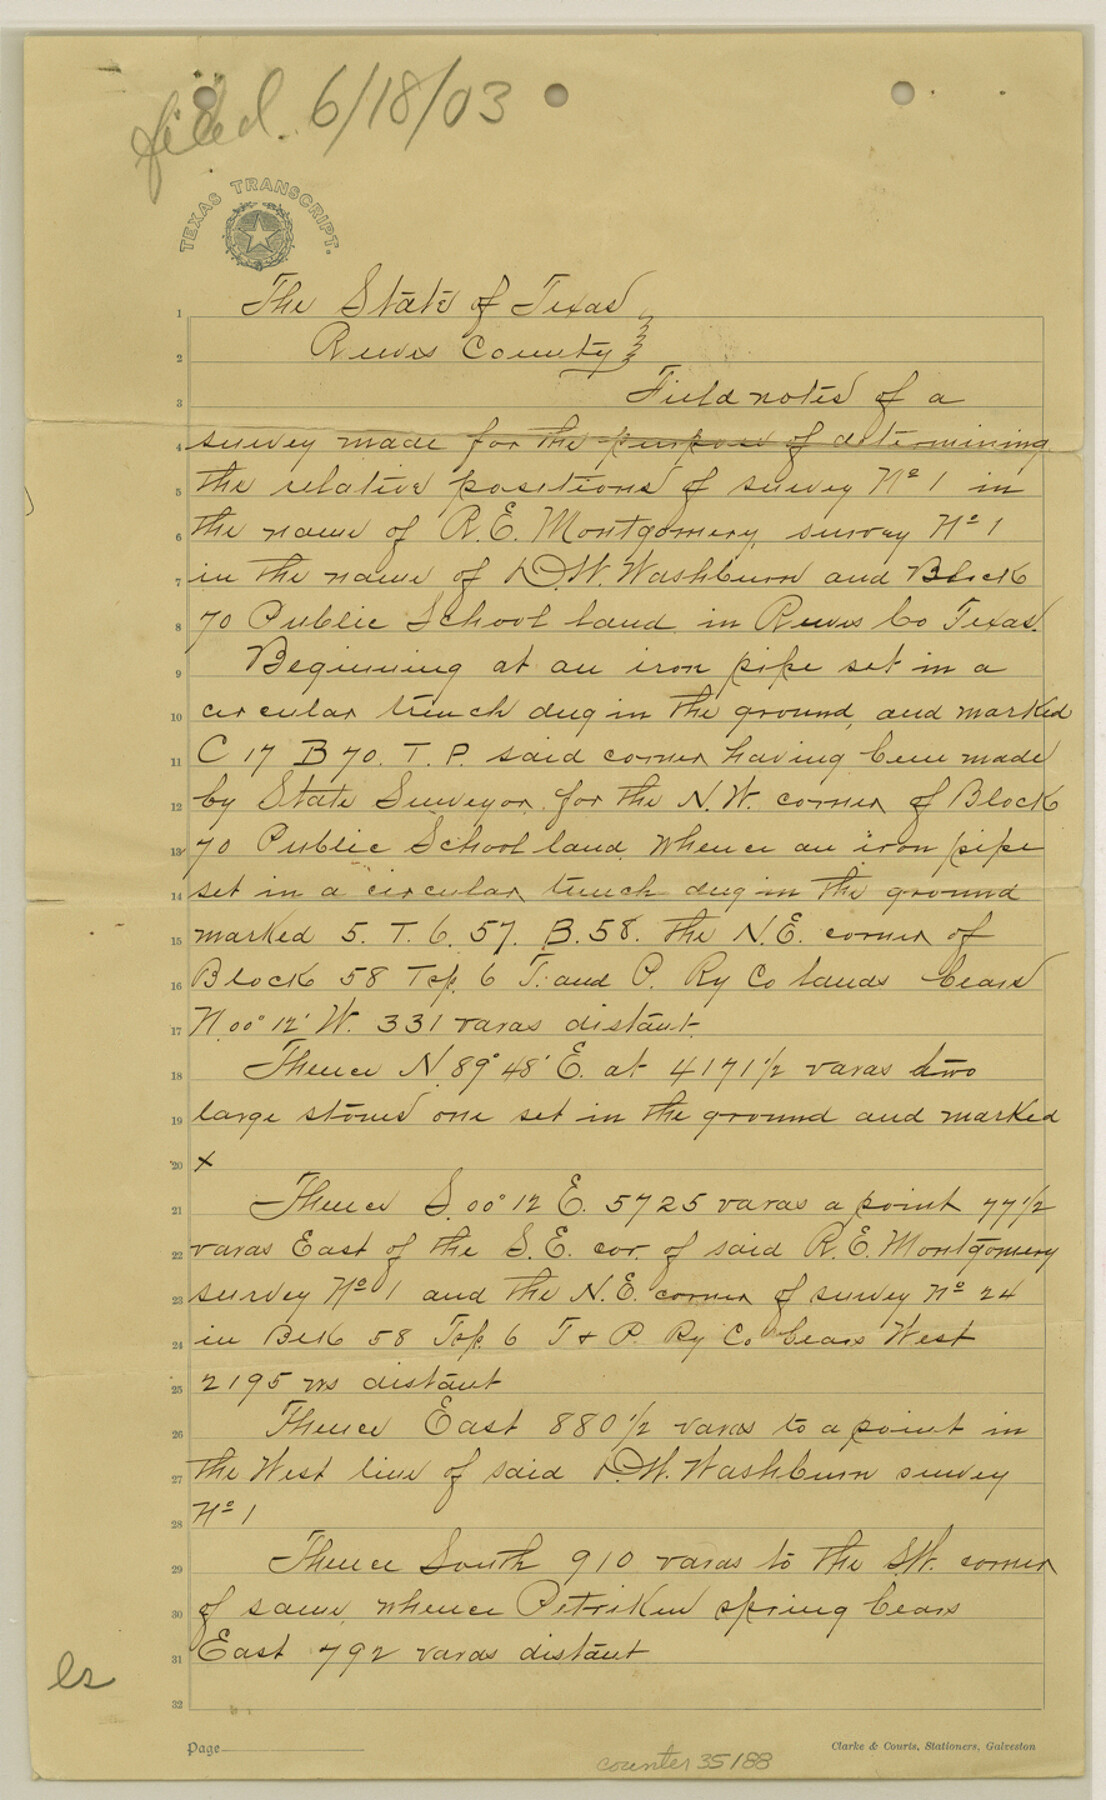 filed. 6/18/03
TEXAS TRANSCRIPT.
The State of Texas
Reeves County
Field notes of a
survey made for the purpose of determining
the relative positions of survey Nº 1 in
the name of R.E. Montgomery, survey Nº 1
in the name of D.W. Washburn and Block
70 Public School land in Reeves Co Texas.
Beginning at an iron pipe set in a
circular trench dug in the ground, and marked
C 17 B 70. T. P. said corner having been made
by State Surveyor for the N.W. corner of Block
70 Public School land, whence an iron pipe
set in a circular trench dug in the ground
marked 5. T. 6. 57. B. 58. the N.E. corner of
Block 58 Tsp. 6 T. and P. Ry Co lands bears
N. 00° 12' W. 331 varas distant.
Thence N. 89° 48' E. at 4171 1/2 varas two
large stones one set in the ground and marked
x
Thence S. 00° 12 E. 5725 varas a point 77 1/2
varas East of the S.E. cor. of said R.E. Montgomery
survey Nº 1 and the N.E. corner of survey Nº 24
in Blk 58 Tsp. 6 T & P. Ry Co bears West
2195 vrs distant
Thence East 880 1/2 varas to a point in
the West line of said D.W. Washburn survey
Nº 1
Thence South 910 varas to the S.W. corner
of same, whence Petriken spring bears
East 792 varas distant
1
2
3
4
5
6
7
8
9
10
11
12
13
14
15
16
17
18
19
20
21
22
23
24
25
26
27
28
29
30
31
32
Page
Clarke & Courts, Stationers, Galveston
counter 35188